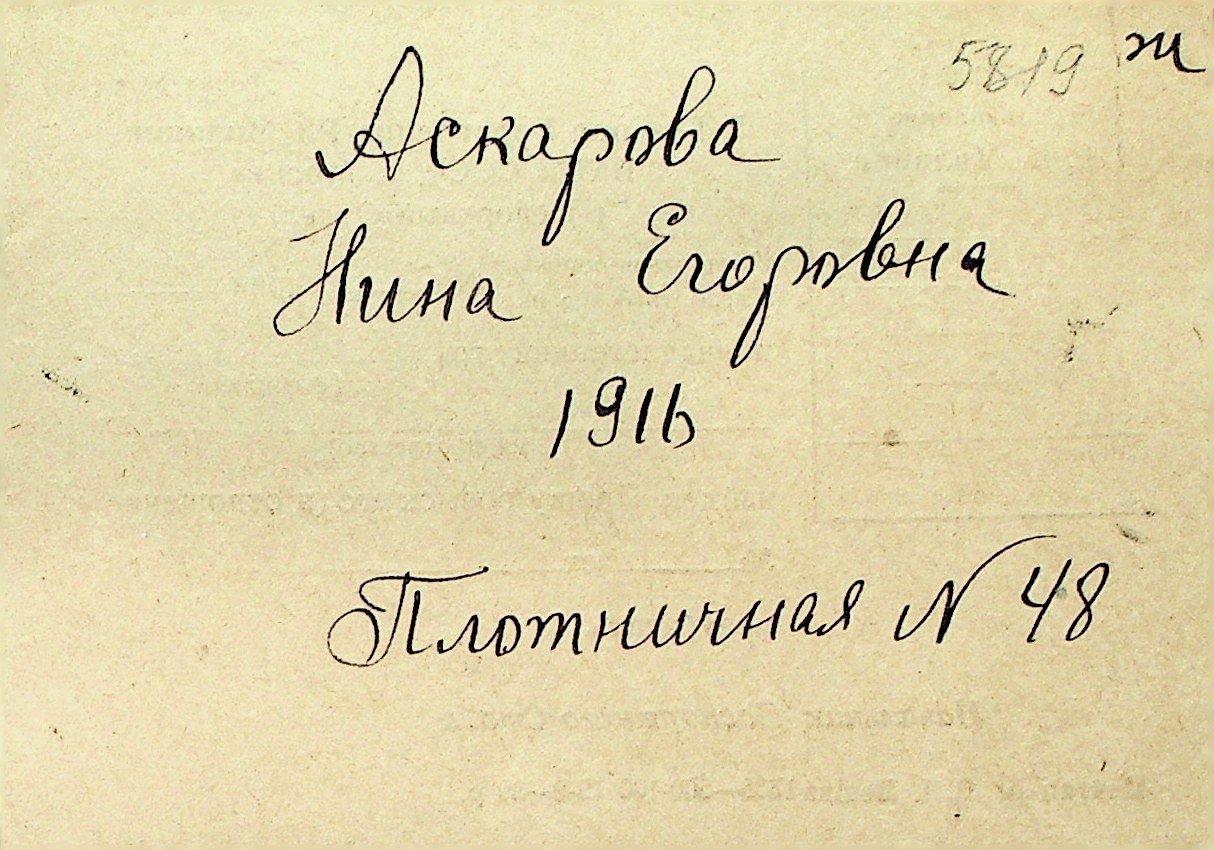 5819 т
Аскарова
Нина Егоровна
1916
Плотничная N 48